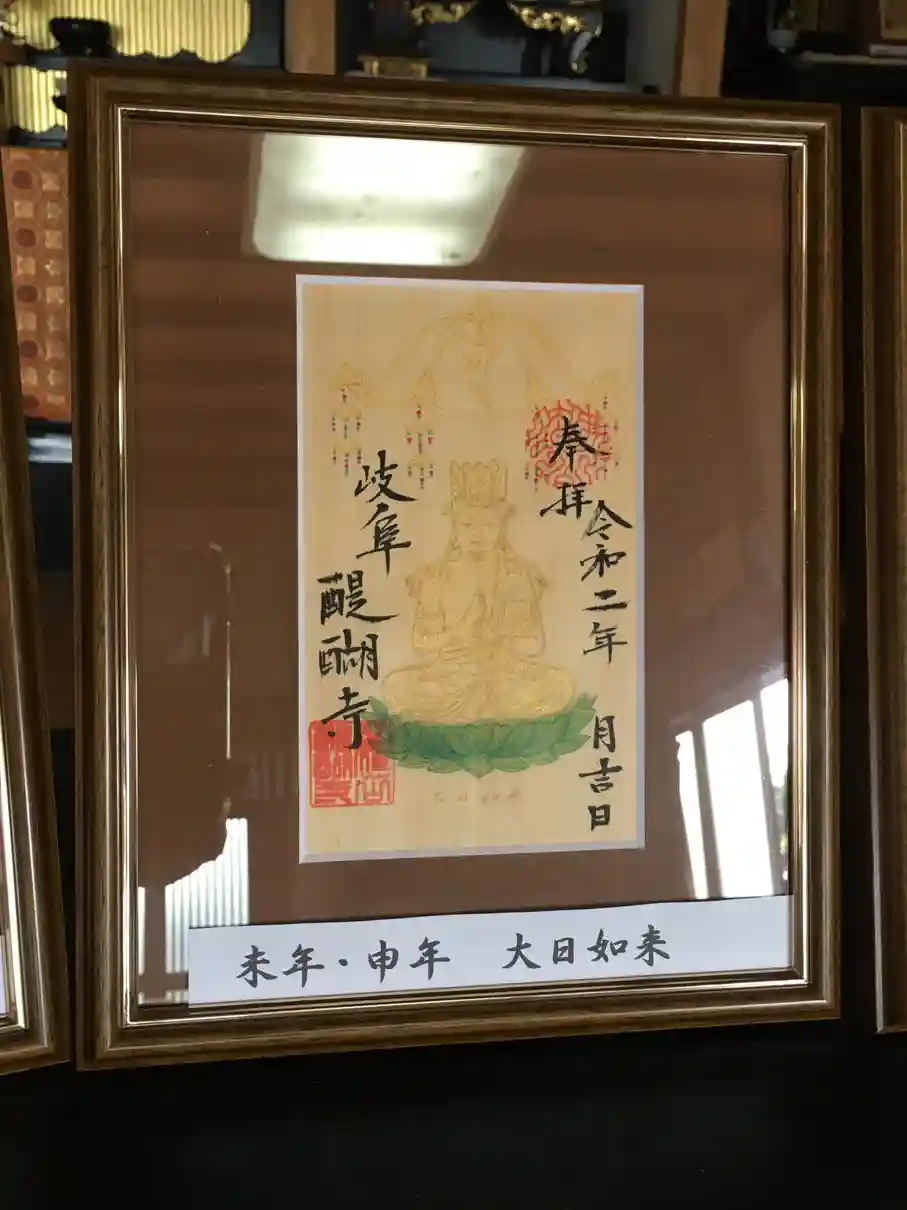 奉拝
令和二年 月吉日
岐阜
醍醐寺
未年・申年 大日如来